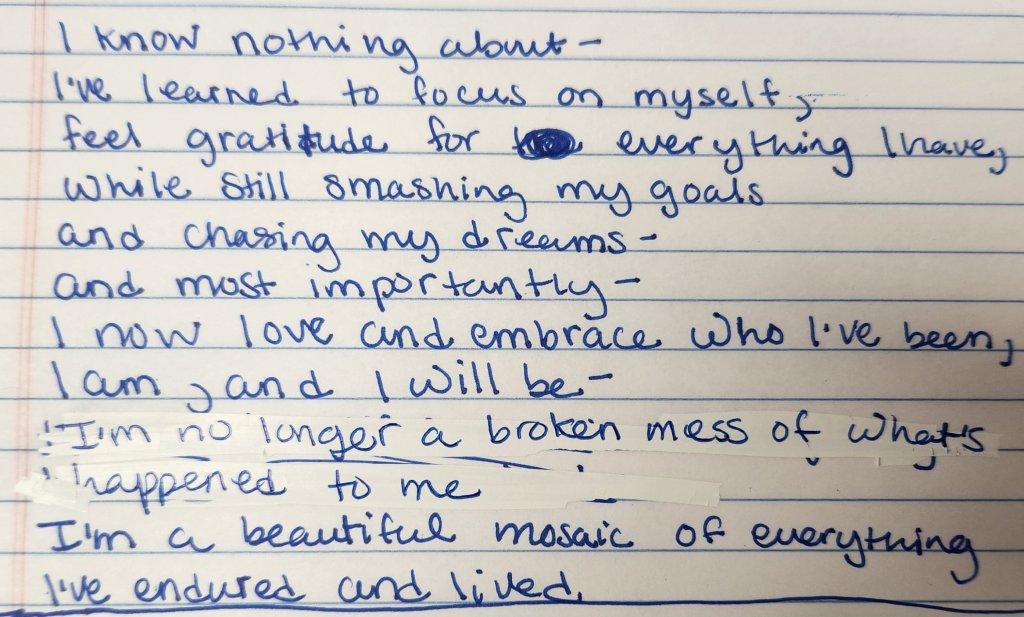 I know nothing about-
I've learned to focus on myself,
feel gratitude for everything I have,
while still smashing my goals
and chasing my dreams-
and most importantly-
I now love and embrace who I've been,
I am, and I will be-
I'm no longer a broken mess of what's
happened to me
I'm a beautiful mosaic of everything
I've endured and lived.